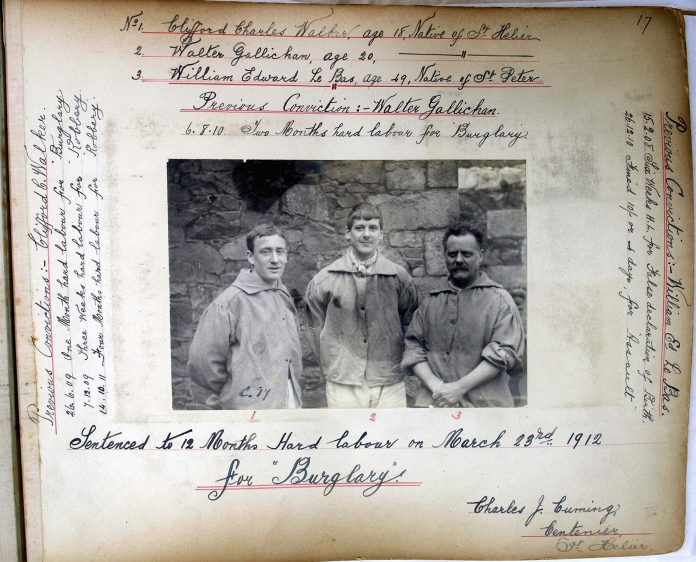 17
No 1. Clifford Charles Walker, age 18, Native of St Helier
2. Walter Gallichan, age 20, — " —
3. William Edward Le Bas, age 49, Native of St Peter
Previous Conviction:- Walter Gallichan.
6. 8. 10. Two Months hard labour for Burglary.
Previous Convictions:- Clifford C. Walker.
26. 6. 09 One Month hard labour for Burglary
7. 12. 09 Three Weeks hard labour for Robbery.
14. 10. 11 Four Months hard labour for Robbery
Previous Convictions:- William Ed. Le Bas.
15. 2. 08. Six Weeks H. L. for False declaration of Birth.
26. 12. 10 Fined 10/- or 4 days, for "Assault"
1 2 3
Sentenced to 12 Months Hard labour on March 23rd 1912
for "Burglary".
Charles J. Cuming,
Centenier,
St Helier.